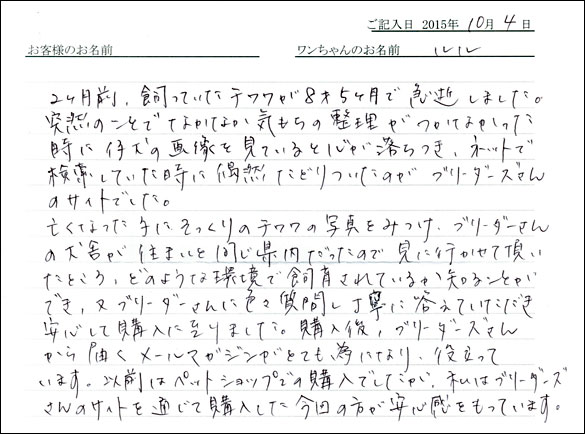 ご記入日 2015年 10月 4日
お客様のお名前 ワンちゃんのお名前 ルル
2ヶ月前、飼っていたチワワが8才5ヶ月で急逝しました。
突然のことでなかなか気もちの整理がつかなかった
時に仔犬の画像を見ていると心が落ちつき、ネットで
検索していた時に偶然たどりついたのがブリーダーズさん
のサイトでした。
亡くなった子にそっくりのチワワの写真をみつけ、ブリーダーさん
の犬舎が住まいと同じ県内だったので見に行かせて頂い
たところ、どのような環境で飼育されているか知ることが
でき、又ブリーダーさんに色々質問し丁寧に答えていただき
安心して購入に至りました。購入後、ブリーダーズさん
から届くメールマガジンがとても為になり、役立って
います。以前はペットショップでの購入でしたが、私はブリーダーズ
さんのサイトを通じて購入した今回の方が安心感をもっています。